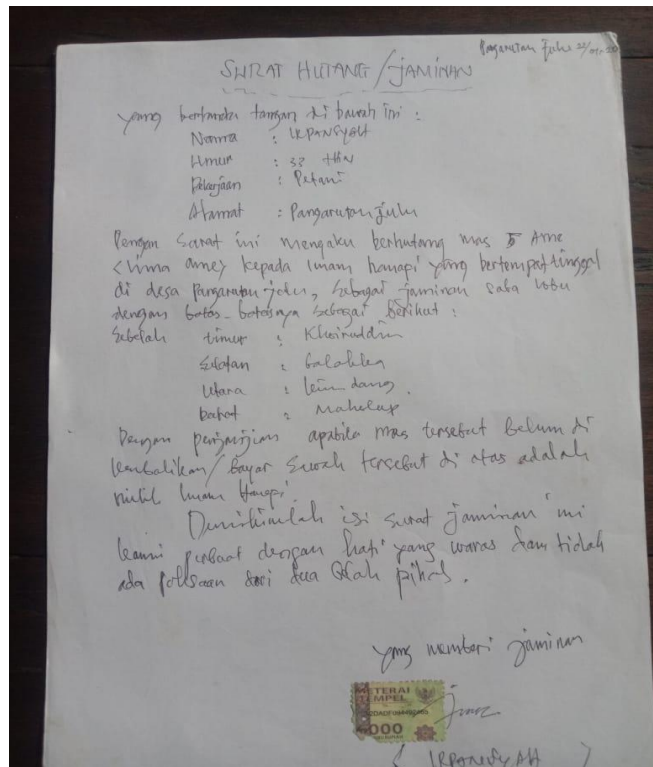 Pangaratan Julu
SURAT HUTANG / JAMINAN
yang bertanda tangan di bawah ini :
Nama : IRPANSYAH
Umur : 33 THN
Pekerjaan : Petani
Alamat : Pangaratan Julu
Dengan Surat ini mengaku berhutang mas 5 Ame
<lima ame> kepada Imam hanapi yang bertempat tinggal
di desa Pangaratan julu, sebagai jaminan saba lobu
dengan batas-batasnya sebagai berikut :
Sebelah timur : Khoiruddin
Selatan :
Utara :
barat :
Dengan perjanjian apabila mas tersebut belum di
kembalikan / bayar Sawah tersebut di atas adalah
milik Imam Hanapi
Demikianlah isi surat jaminan ini
kami perbuat dengan hati yang waras dan tidak
ada paksaan dari dua belah pihak.
yang memberi jaminan
METERAI
TEMPEL
000
( IRPANSYAH )